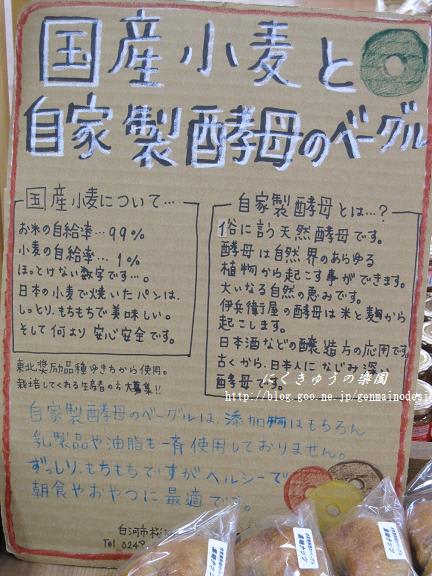 国産小麦と
自家製酵母のベーグル
国産小麦について…
お米の自給率…99%
小麦の自給率…1%
ほっとけない数字です…。
日本の小麦で焼いたパンは、
しっとり、もちもちで美味しい。
そして何より安心安全です。
東北奨励品種ゆきちから使用。
栽培してくれる生産者の方大募集!!
自家製酵母とは…?
俗に言う天然酵母です。
酵母は自然界のあらゆる
植物から起こす事ができます。
大いなる自然の恵みです。
伊兵衛屋の酵母は米と麹から
起こします。
日本酒などの醸造方の応用です
古くから、日本人になじみ深い
酵母です。
にくきゅうの楽園
http://blog.goo.ne.jp/genmainodesi
自家製酵母のベーグルは、添加物はもちろん
乳製品や油脂も一斉使用しておりません。
ずっしり、もちもちですがヘルシーで
朝食やおやつに最適です。
白河市
Tel 0248